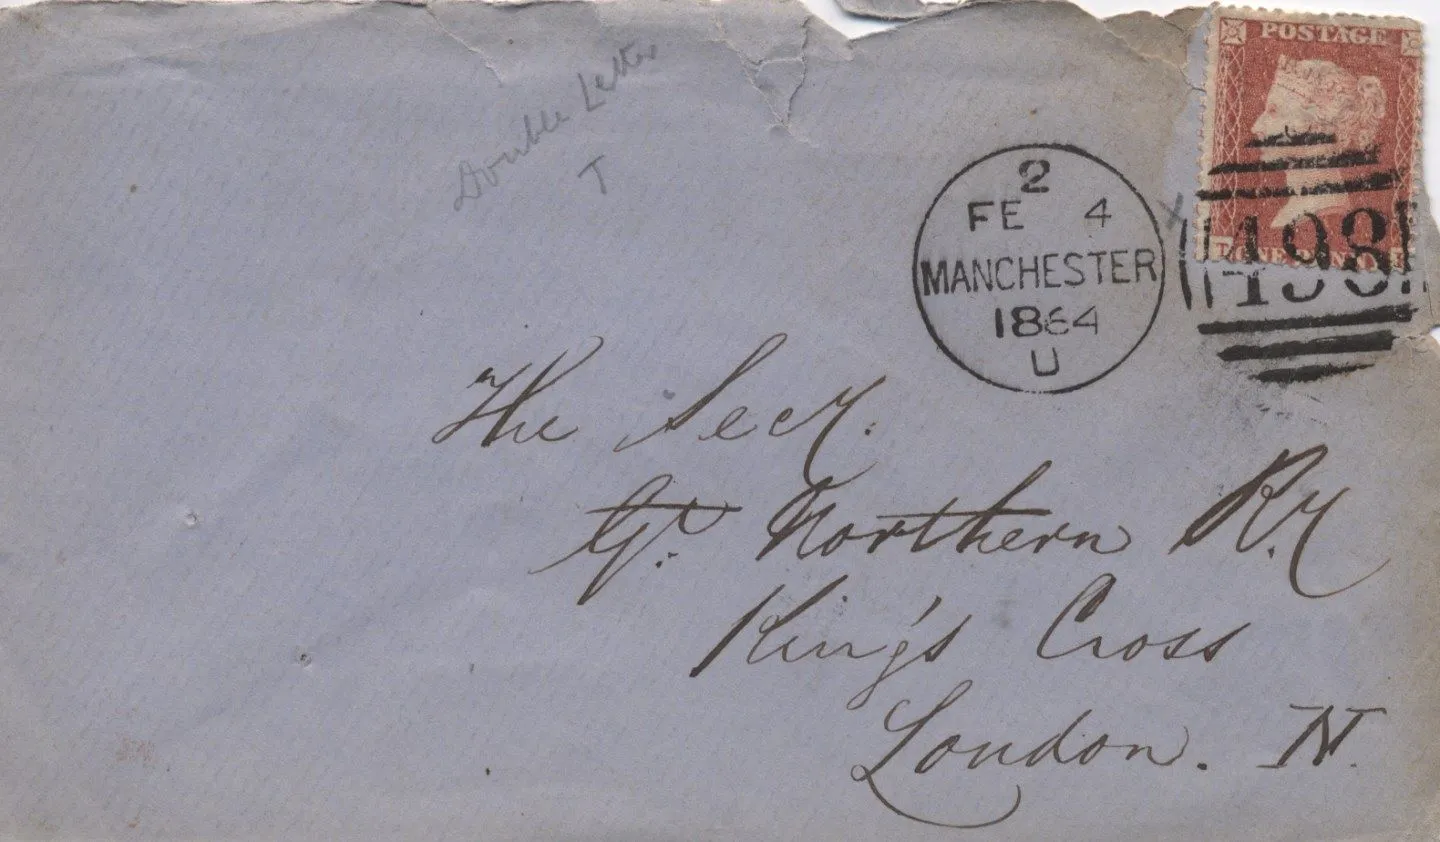 Double Letter
T
POSTAGE
ONE PENNY
2
FE 4
MANCHESTER
1864
U
498
The Secy.
Gt. Northern Ry
King's Cross
London. N.